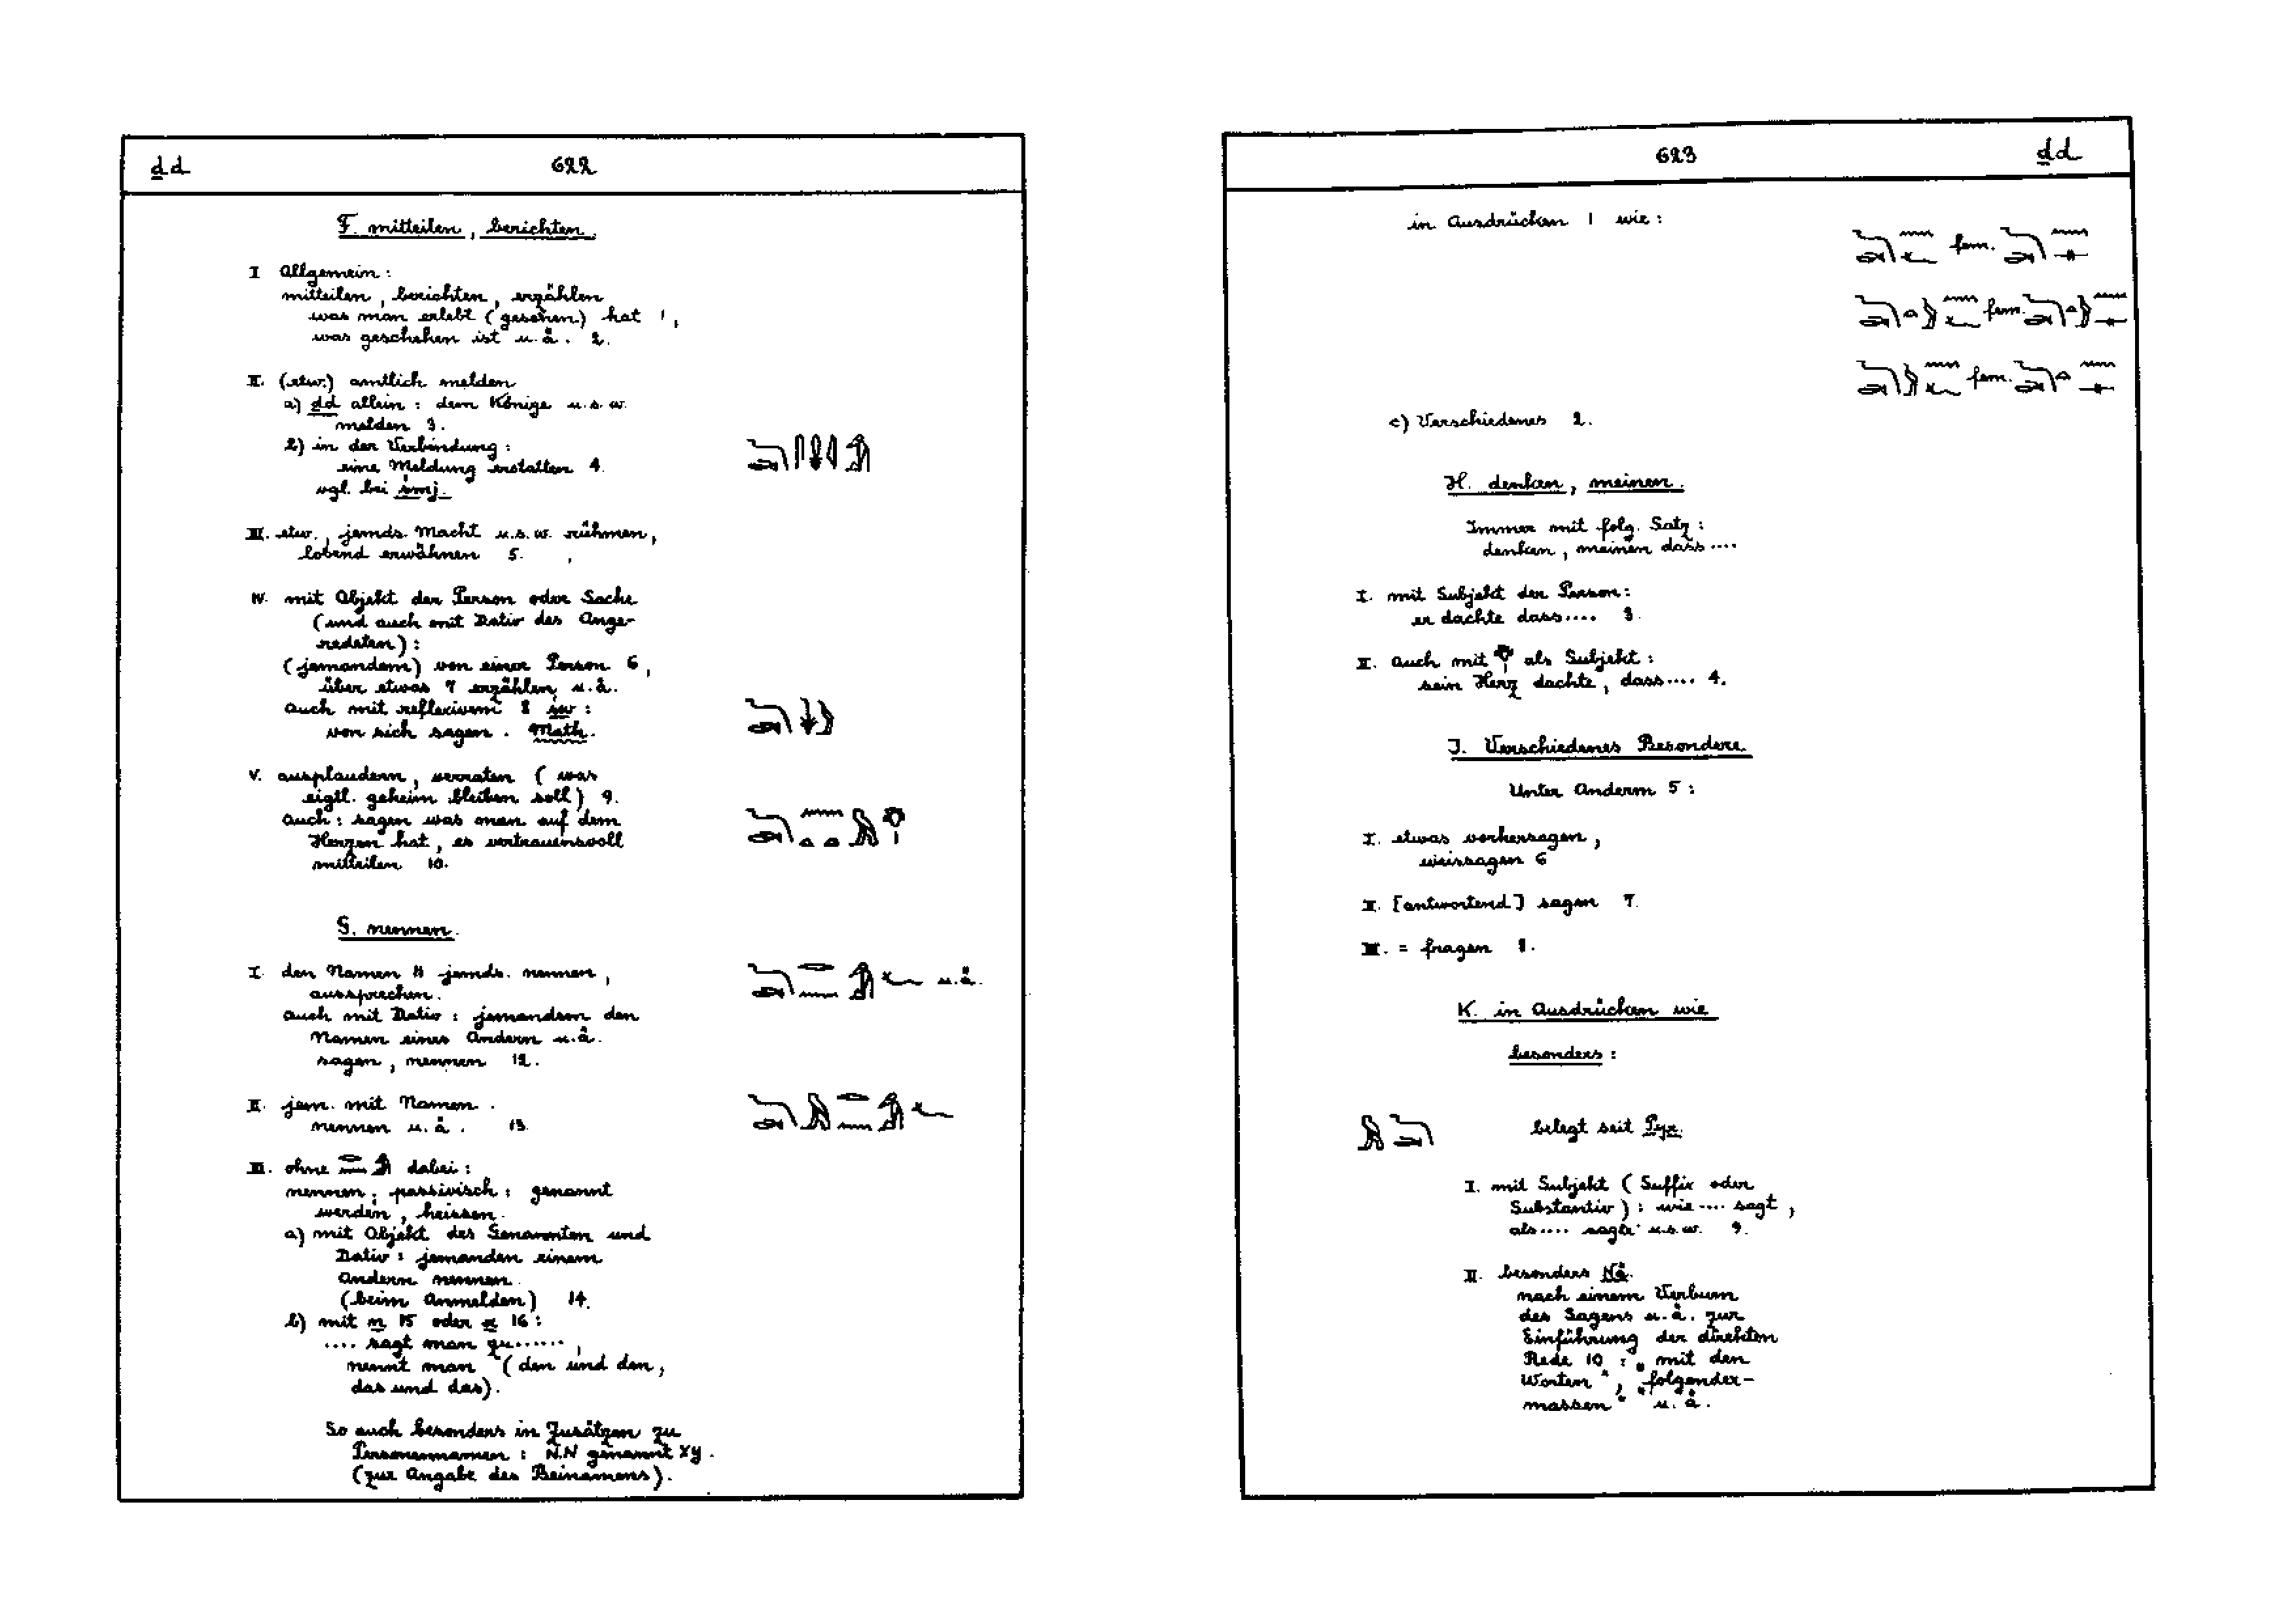 ḏd 622
F. mitteilen, berichten.
I Allgemein:
mitteilen, berichten, erzählen
was man erlebt (gesehen) hat 1,
was geschehen ist u.ä. 2.
II. (etw.) amtlich melden
a) ḏd allein: dem Könige u.s.w.
melden 3.
b) in der Verbindung:
eine Meldung erstatten 4.
vgl. bei śmj.
III. etw., jemds. Macht u.s.w. rühmen,
lobend erwähnen 5.
IV. mit Objekt der Person oder Sache
(und auch mit Dativ des Ange-
redeten):
(jemandem) von einer Person 6,
über etwas 7 erzählen u.ä.
auch mit reflexivem 8 św:
von sich sagen. Math.
V. ausplaudern, verraten (was
eigtl. geheim bleiben soll) 9.
Auch: sagen was man auf dem
Herzen hat, es vertrauensvoll
mitteilen 10.
G. nennen.
I. den Namen 11 jemds. nennen,
aussprechen. u.ä.
auch mit Dativ: jemandem den
Namen eines Andern u.ä.
sagen, nennen 12.
II. jem. mit Namen
nennen u.ä. 13.
III. ohne dabei:
nennen; passivisch: genannt
werden, heissen.
a) mit Objekt des Genannten und
Dativ: jemanden einem
Andern nennen.
(beim Anmelden) 14.
b) mit n 15 oder r 16:
.... sagt man zu......,
nennt man (den und den,
das und das).
So auch besonders in Zusätzen zu
Personennamen: N.N genannt XY.
(zur Angabe des Beinamens).
623 ḏd
in Ausdrücken 1 wie:
fem.
fem.
fem.
c) Verschiedenes 2.
H. denken, meinen.
Immer mit folg. Satz:
denken, meinen dass....
I. mit Subjekt der Person:
er dachte dass.... 3.
II. Auch mit als Subjekt:
sein Herz dachte, dass.... 4.
J. Verschiedenes Besondere.
Unter Anderm 5:
I. etwas vorhersagen,
weissagen 6
II. [antwortend] sagen 7.
III. = fragen 8.
K. in Ausdrücken wie
besonders:
belegt seit Pyr.
I. mit Subjekt (Suffix oder
Substantiv): wie.... sagt,
als.... sagte u.s.w. 9.
II. besonders Nä.
nach einem Verbum
des Sagens u.ä. zur
Einführung der direkten
Rede 10: „mit den
Worten“, „folgender-
massen“ u.ä.